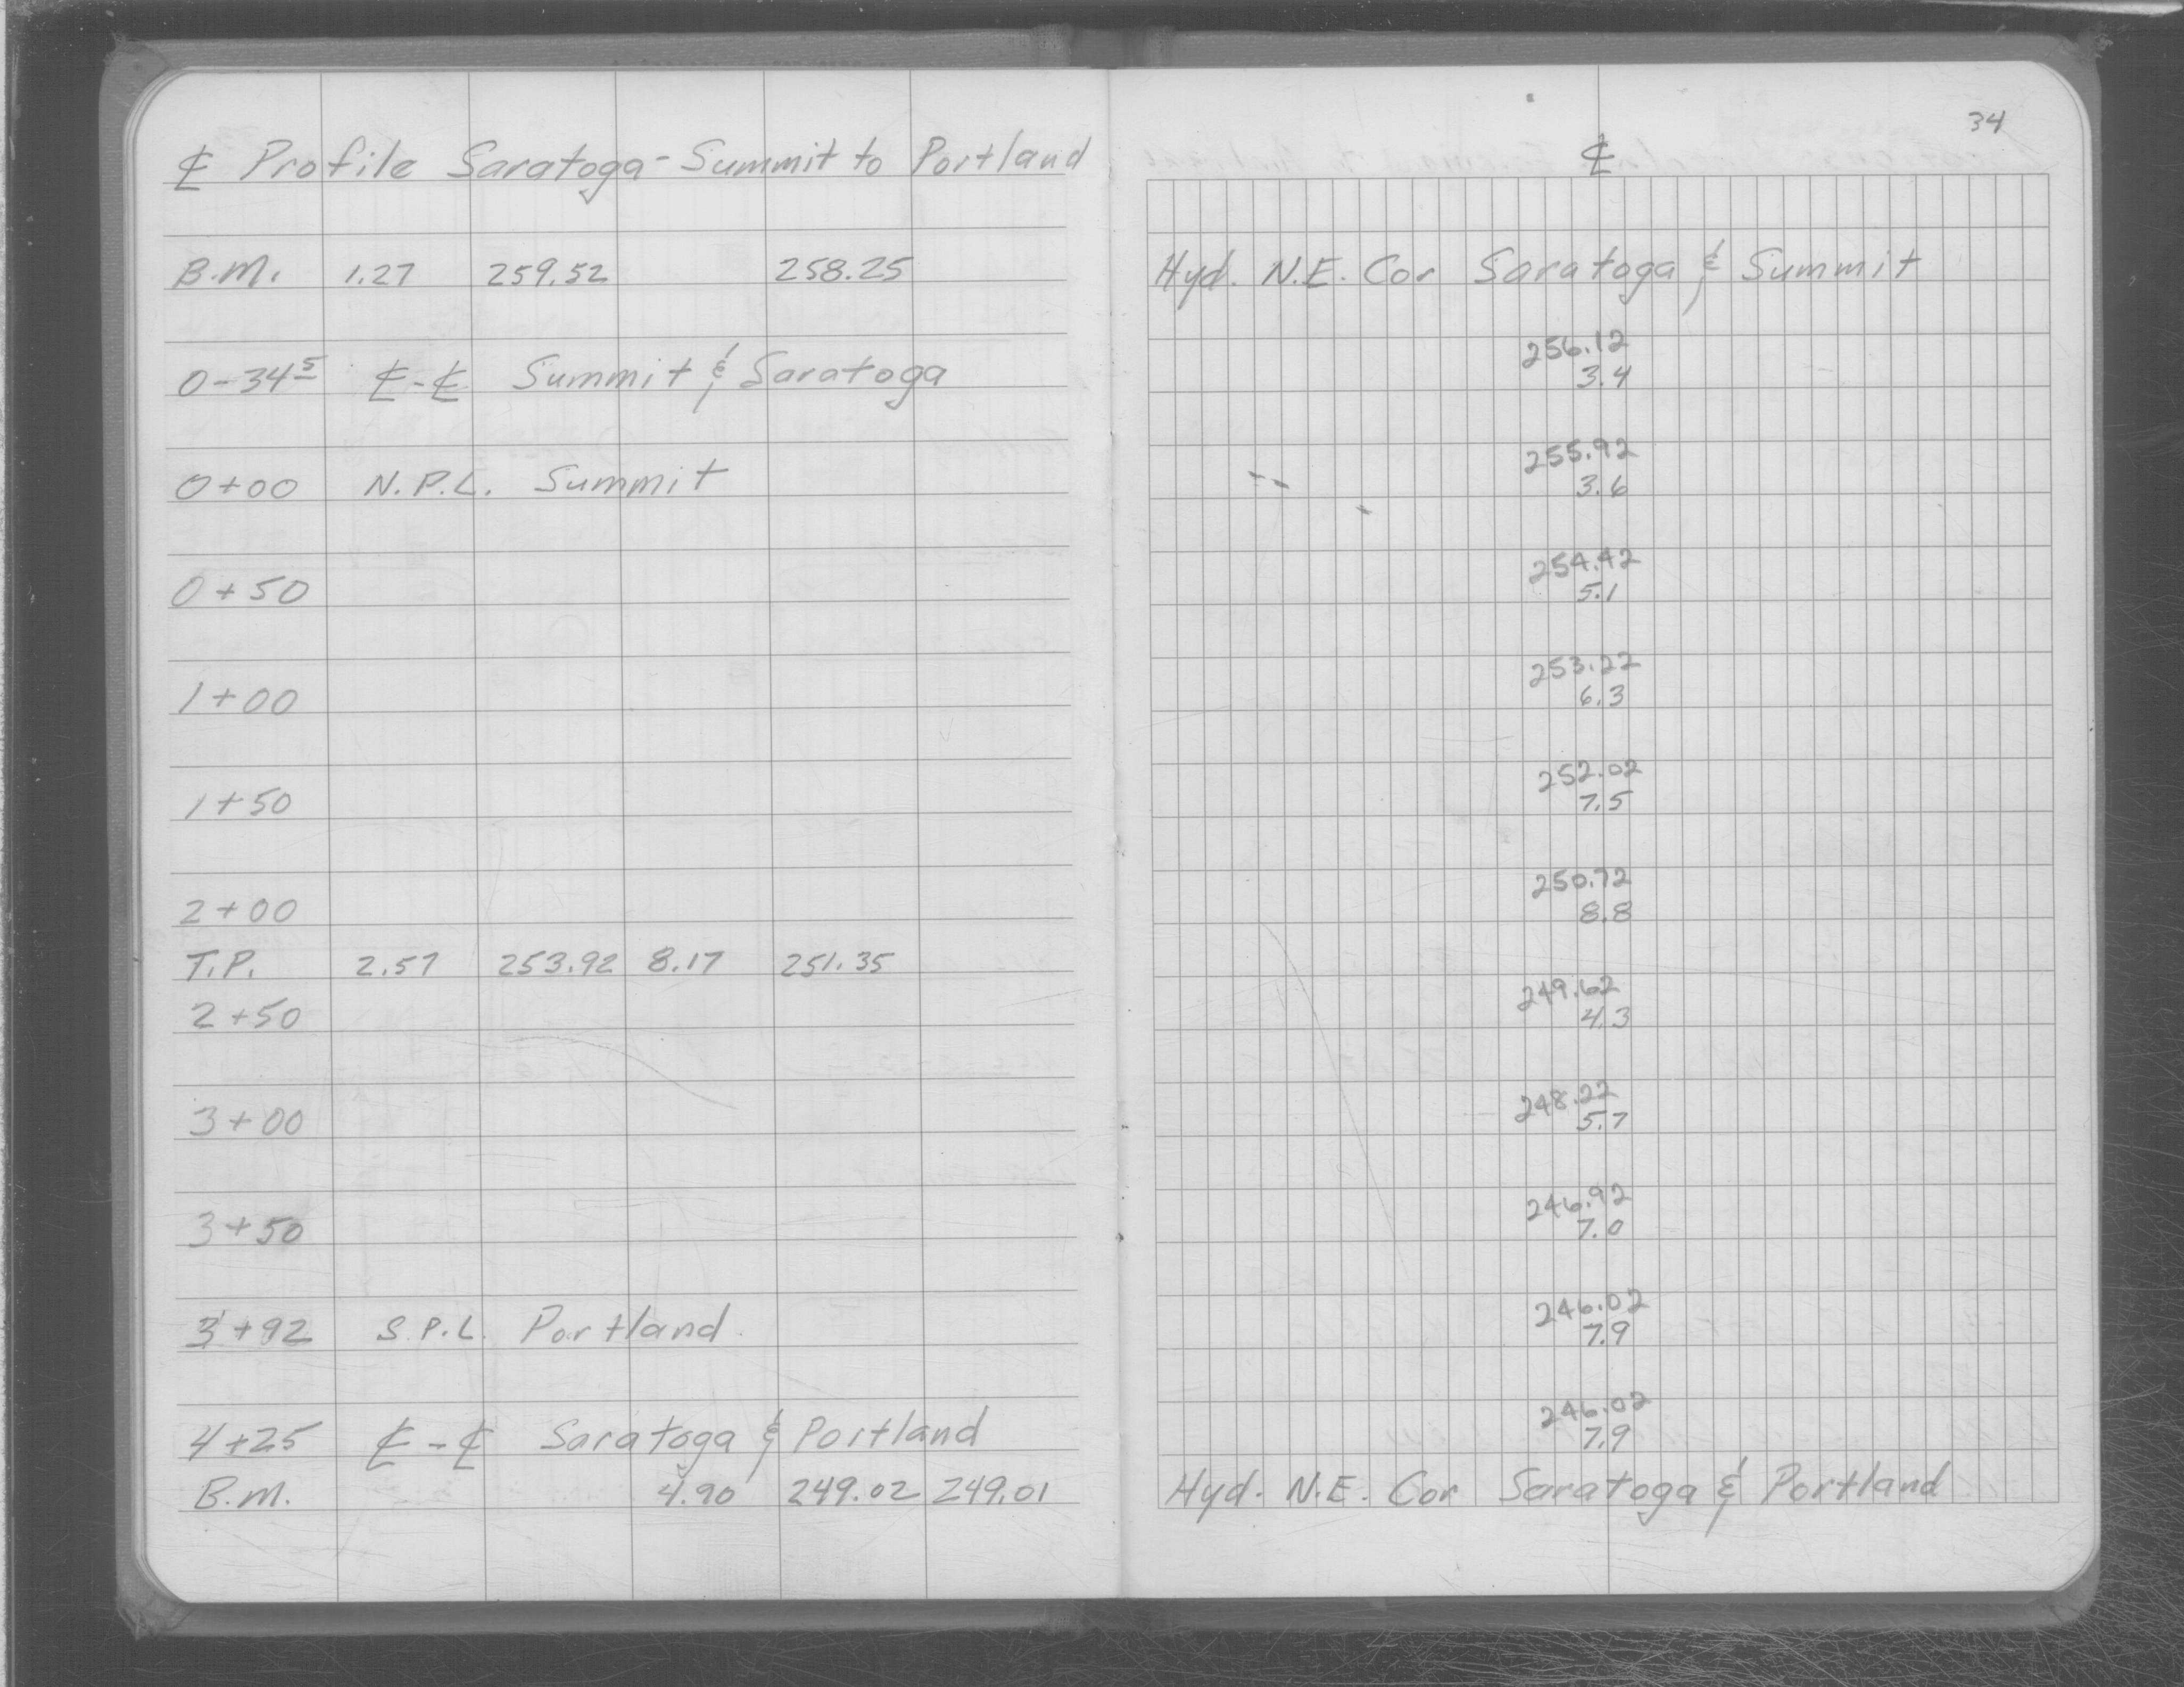 ℄ Profile Saratoga - Summit to Portland
B.M. 1.27 259.52 258.25
0-34⁵ ℄-℄ Summit & Saratoga
0+00 N.P.L. Summit
0+50
1+00
1+50
2+00
T.P. 2.57 253.92 8.17 251.35
2+50
3+00
3+50
3+92 S.P.L. Portland
4+25 ℄-℄ Saratoga & Portland
B.M. 4.90 249.02 249.01
34
℄
Hyd. N.E. Cor Saratoga & Summit
256.12
3.4
255.92
3.6
254.42
5.1
253.22
6.3
252.02
7.5
250.72
8.8
249.62
4.3
248.22
5.7
246.92
7.0
246.02
7.9
246.02
7.9
Hyd. N.E. Cor Saratoga & Portland